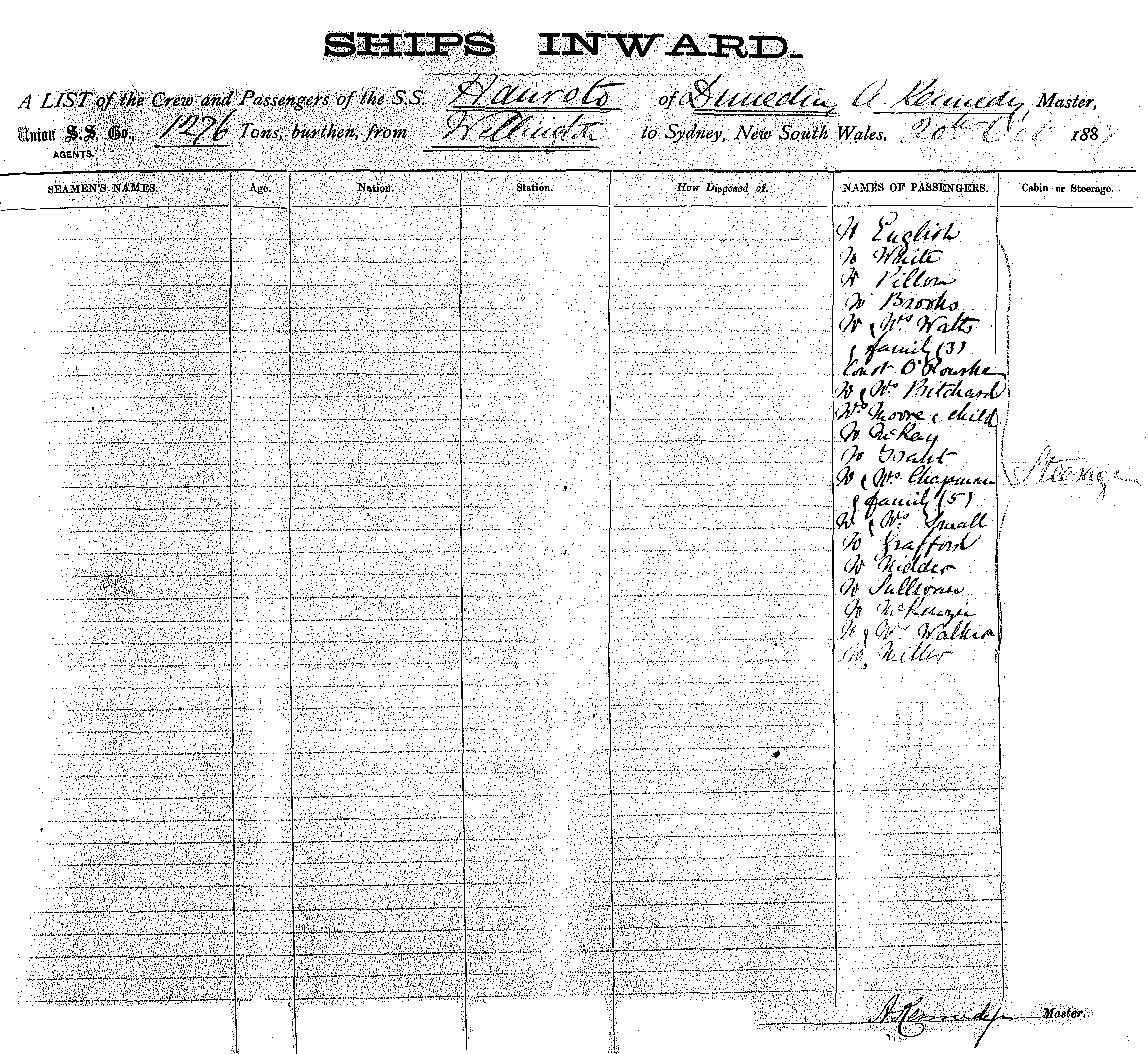 SHIPS INWARD.
A LIST of the Crew and Passengers of the S.S. Hauroto of Dunedin, A. Kennedy, Master,
Union S.S. Co., 1276 Tons, burthen, from Wellington to Sydney, New South Wales, 20th Oct 188
AGENTS.
SEAMEN'S NAMES. Age. Nation. Station. How Disposed of. NAMES OF PASSENGERS. Cabin or Steerage.
Mr English
Mr White
Mr Pillow
Mr Brooks
Mr & Mrs Watts
& family (3)
Const O'Rourke
Mr & Mrs Pritchard
Mrs Moore & child
Mr McKay
Mr Grant
Mr & Mrs Chapman
& family (5)
Steerage
Mr & Mrs Small
Mr
Mr
Mr Sullivan
Mr
Mr & Mrs
Mr Miller
A Kennedy Master.